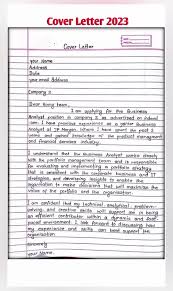 Cover Letter 2023
Cover Letter
your Name
Address
Date
your email Address
Company's
Dear Hiring team,
I am applying for the Business
Analyst position in company's as advertised on
I am I have previous experience as a Business
Analyst at JP Morgan where I have spent the past 2
years and gained knowledge of the product management
and financial services industry.
I understand that the Business Analyst works directly
with the portfolio management team and is responsible
for evaluating and implementing a portfolio strategy
that is consistent with the corporate business and IT
strategies, and developing insights to enable the
organisation to make decisions that will maximise the
value of the portfolio and the organisation.
I am confident that my technical analytical, problem-
solving, and creative skills will support me in being
an efficient contributor within a dynamic and fast-
paced environment. I look forward to discussing how
my experience and skills can best support the
organisation.
Sincerely
your Name.